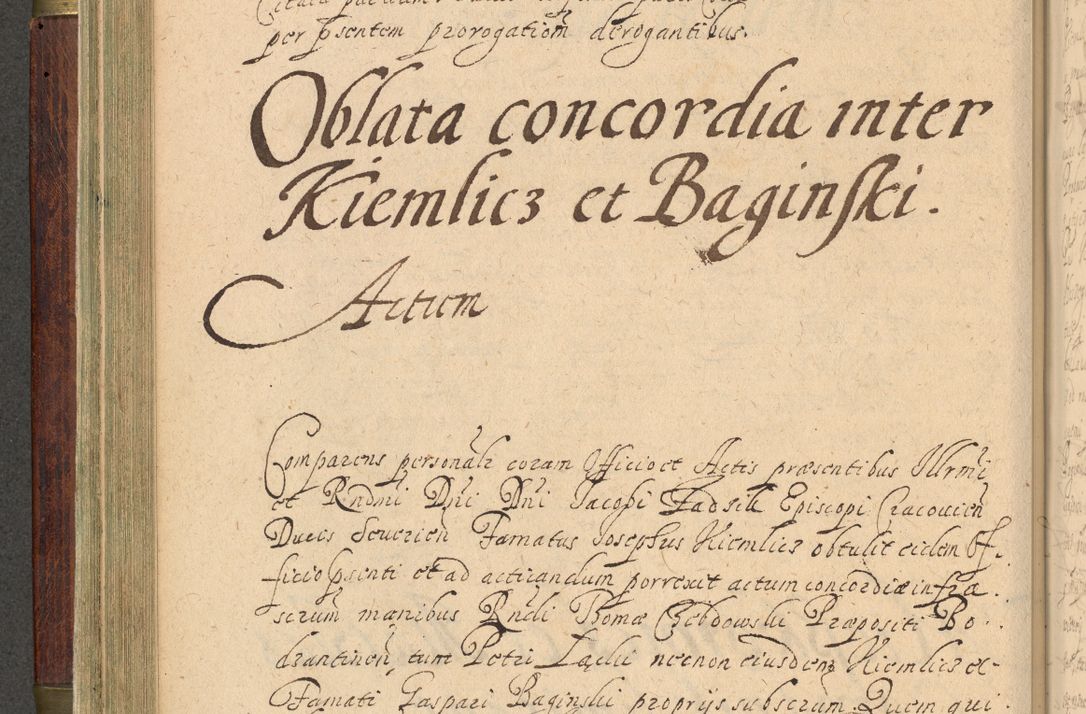 per psentem prorogationem derogantibus.
Oblata concordia inter
Kiemlicz et Baginski.
Actum
Comparens personalr coram Officio et Actis præsentibus Illrmi
et Rndmi Dni Dni Jacobi Zadzik Episcopi Cracovien
Ducis Severien Famatus Josephus Kiemlicz obtulit eidem Of-
ficio psenti et ad acticandum porrexit actum concordiæ infra
scrum manibus Rndi Thomæ Chebdowski Præpositi Bo-
dzantinen tum Petri Lacki necnon eiusdem Kiemlicz et
Famati Gaspari Baginski proprijs subscrum. Quem qui